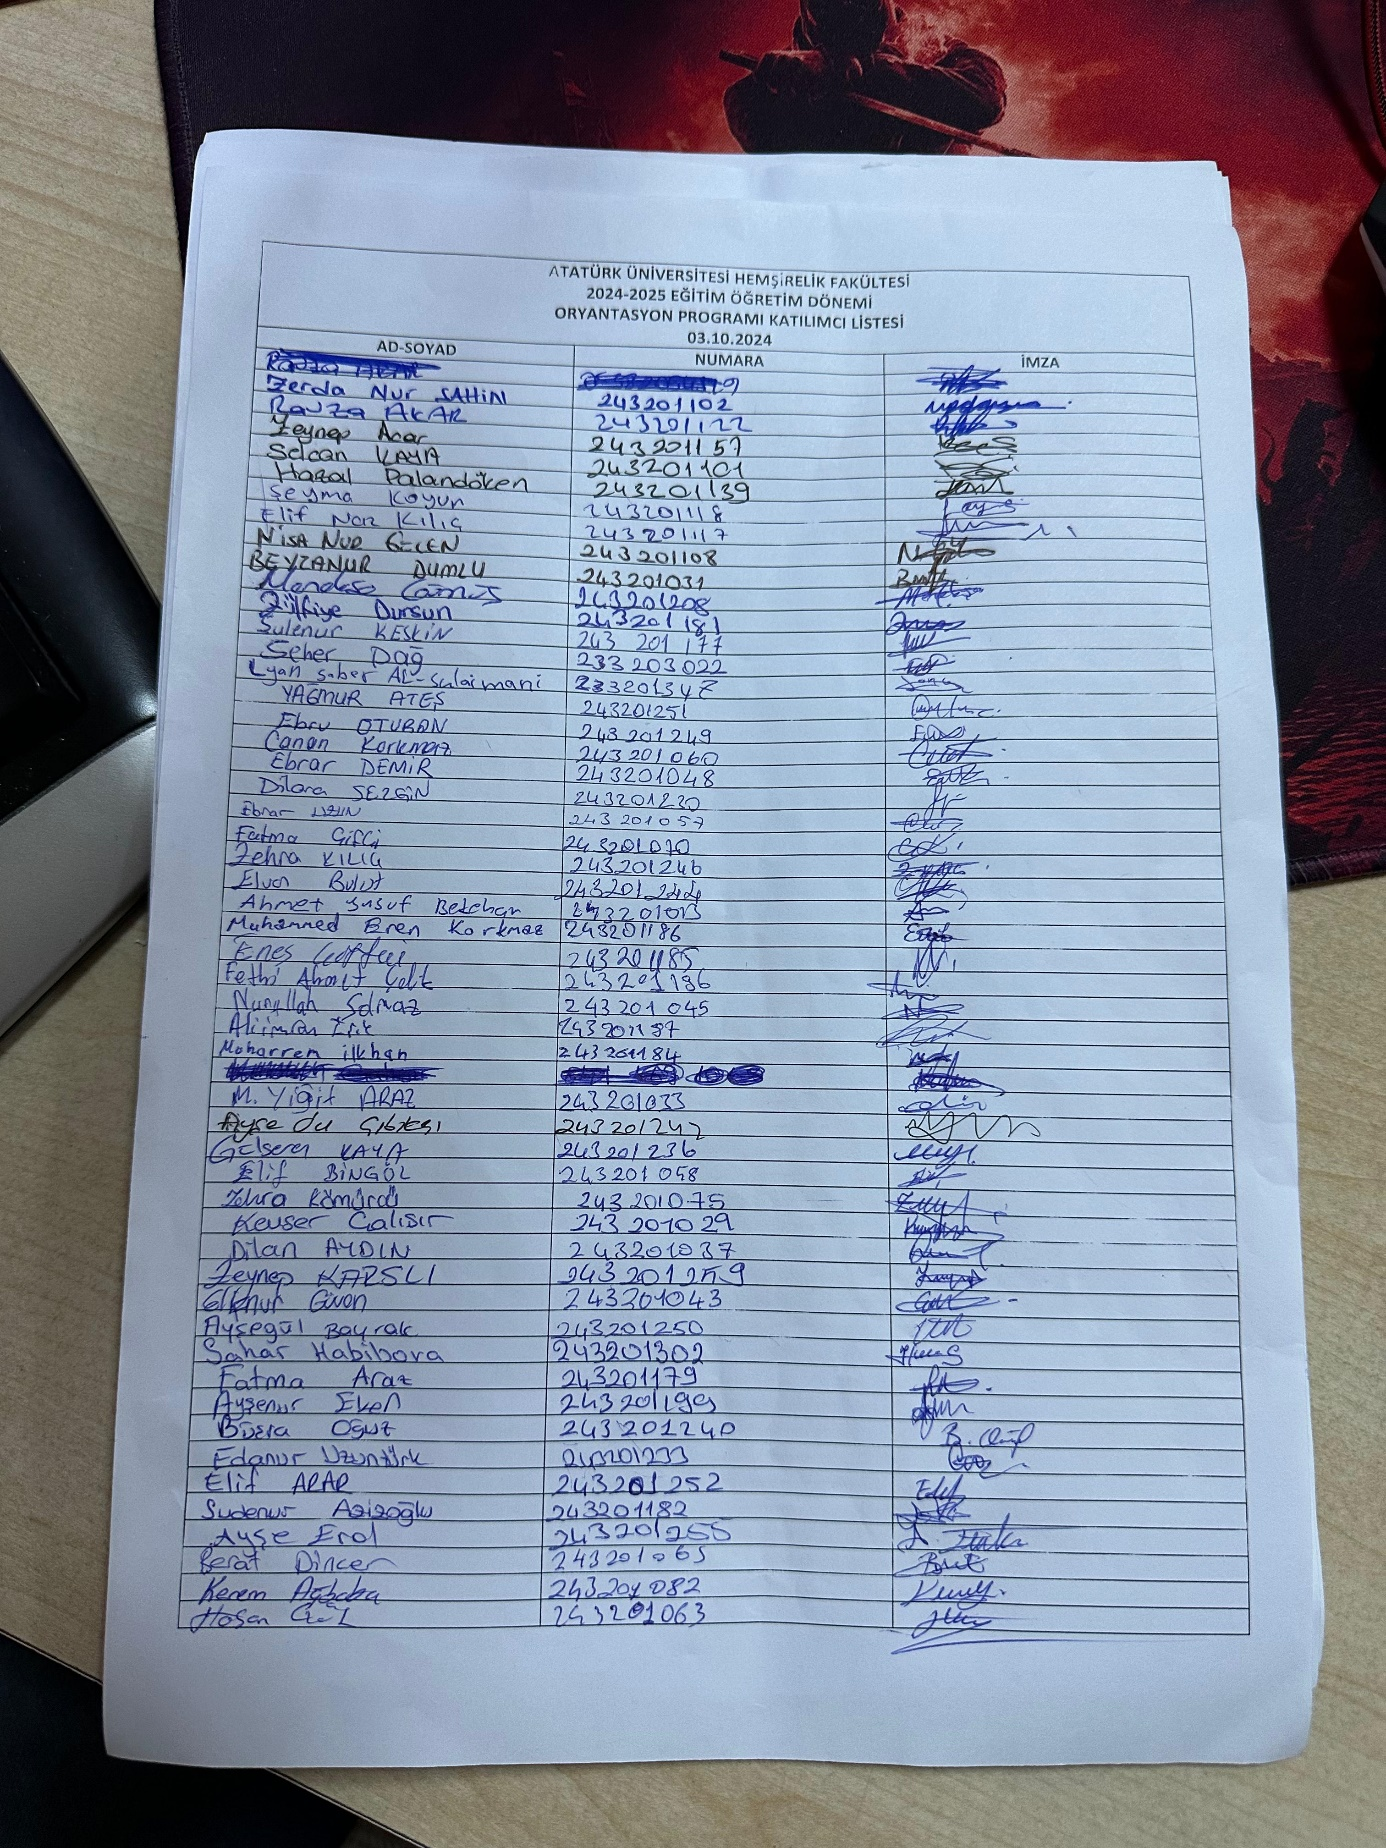 ATATÜRK ÜNİVERSİTESİ HEMŞİRELİK FAKÜLTESİ
2024-2025 EĞİTİM ÖĞRETİM DÖNEMİ
ORYANTASYON PROGRAMI KATILIMCI LİSTESİ
03.10.2024
AD-SOYAD NUMARA İMZA
Zerda Nur ŞAHİN 243201102
Ravza AKAR 243201122
Zeynep Acar 243201157
Selcan KAYA 243201101
Hazal Palandöken 243201139
Şeyma Koyun 243201118
Elif Naz Kılıç 243201117
NİSA NUR GEÇEN 243201108
BEYZANUR DUMLU 243201031
243201208
Zülfiye Dursun 243201181
Şulenur KESKİN 243 201 177
Seher Dağ 233203022
Lyan saber AL-sulaimani 233201347
YAĞMUR ATEŞ 243201251
Ebru OTURAN 243201249
Canan Korkmaz 243201060
Ebrar DEMİR 243201048
Dilara SEZGİN 243201230
Ebrar UZUN 243201057
Fatma Çiftçi 243201070
Zehra KILIÇ 243201246
Elvan Bulut 243201244
Ahmet Yusuf Betchan
Muhammed Eren Korkmaz 243201186
Enes 243201185
Fethi Ahmet Çelik 243201196
Nurullah Solmaz 243201045
Aliimran Işık 243201197
Moharrem ilkhan 243201184
M. Yiğit ARAZ 243201033
Ayşe 243201242
Gülseren KAYA 243201236
Elif BİNGÖL 243201058
Zehra Kömürcü 243201075
Kevser Çalışır 243201029
Dilan AYDIN 243201037
Zeynep KARSLI 243201259
Elifnur Güven 243201043
Ayşegül Bayrak 243201250
Sahar Habibova 243201302
Fatma Araz 243201179
Ayşenur Eken 243201199
Büşra Oğuz 243201240
Edanur Uzuntürk 243201233
Elif ARAR 243201252
Sudenur Azizoğlu 243201182
Ayşe Erol 243201255
Berat Dinçer 243201065
Kerem Ağbaba 243201082
Hasan 243201063